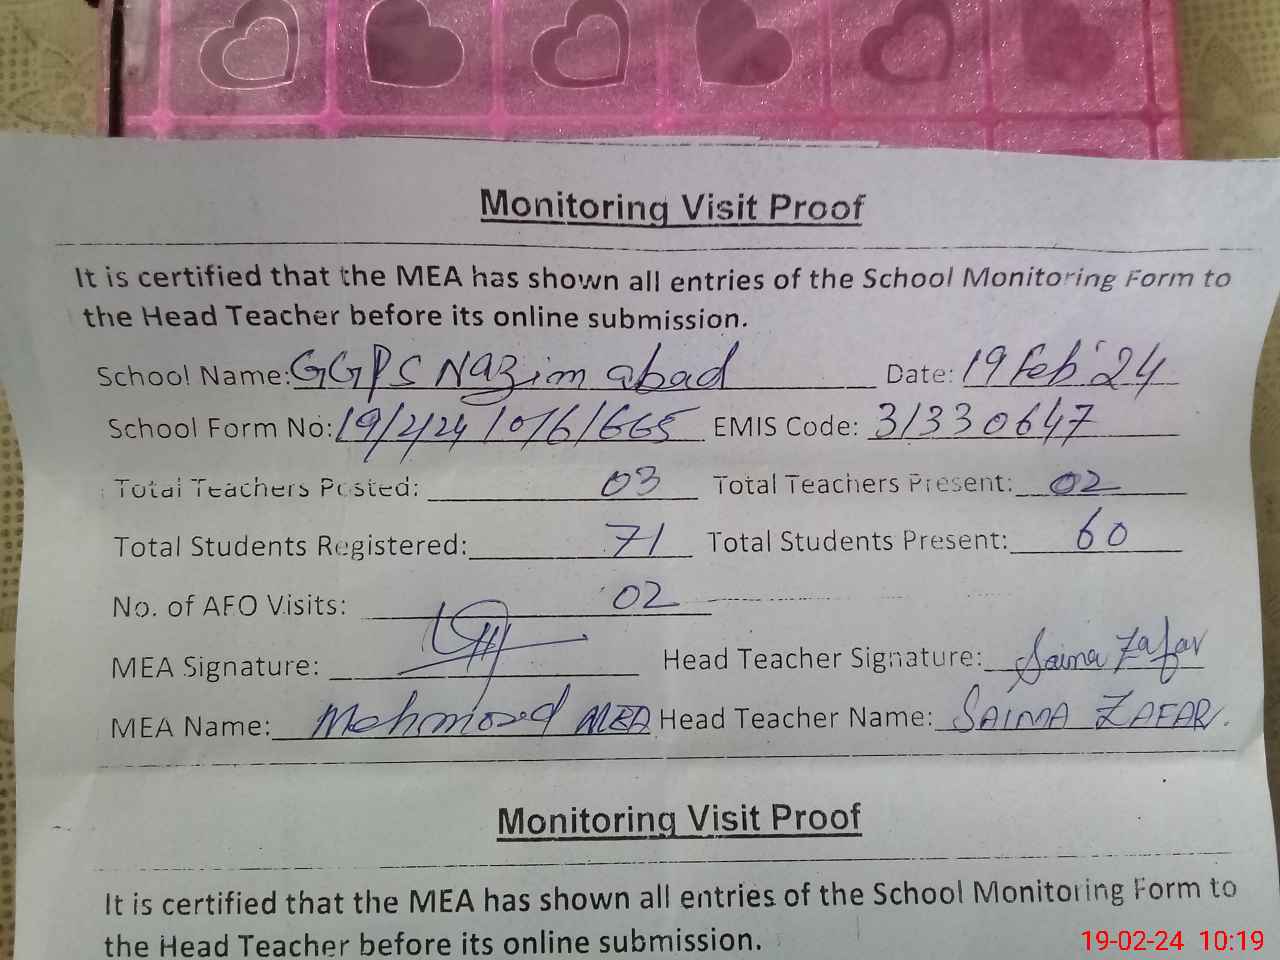 Monitoring Visit Proof
It is certified that the MEA has shown all entries of the School Monitoring Form to
the Head Teacher before its online submission.
School Name: GGPS Nazim abad Date: 19 Feb'24
School Form No: 19/2/24 10/6/665 EMIS Code: 31330647
Total Teachers Posted: 03 Total Teachers Present: 02
Total Students Registered: 71 Total Students Present: 60
No. of AFO Visits: 02
MEA Signature: Head Teacher Signature: Saima Zafar
MEA Name: Mehmood MEA Head Teacher Name: SAIMA ZAFAR.
Monitoring Visit Proof
It is certified that the MEA has shown all entries of the School Monitoring Form to
the Head Teacher before its online submission.
19-02-24 10:19